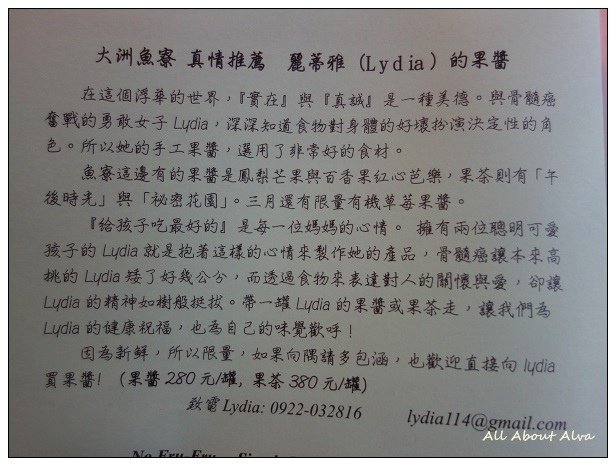 大洲魚寮 真情推薦 麗蒂雅 (Lydia) 的果醬
在這個浮華的世界，『實在』與『真誠』是一種美德。與骨髓癌
奮戰的勇敢女子 Lydia，深深知道食物對身體的好壞扮演決定性的角
色。所以她的手工果醬，選用了非常好的食材。
魚寮這邊有的果醬是鳳梨芒果與百香果紅心芭樂，果茶則有「午
後時光」與「祕密花園」。三月還有限量有機草莓果醬。
『給孩子吃最好的』是每一位媽媽的心情。 擁有兩位聰明可愛
孩子的 Lydia 就是抱著這樣的心情來製作她的產品，骨髓癌讓本來高
挑的 Lydia 矮了好幾公分，而透過食物來表達對人的關懷與愛，卻讓
Lydia 的精神如樹般挺拔。帶一罐 Lydia 的果醬或果茶走，讓我們為
Lydia 的健康祝福，也為自己的味覺歡呼！
因為新鮮，所以限量，如果向隅請多包涵，也歡迎直接向 lydia
買果醬! (果醬 280 元/罐, 果茶 380 元/罐)
致電 Lydia: 0922-032816 lydia114@gmail.com
All About Alva